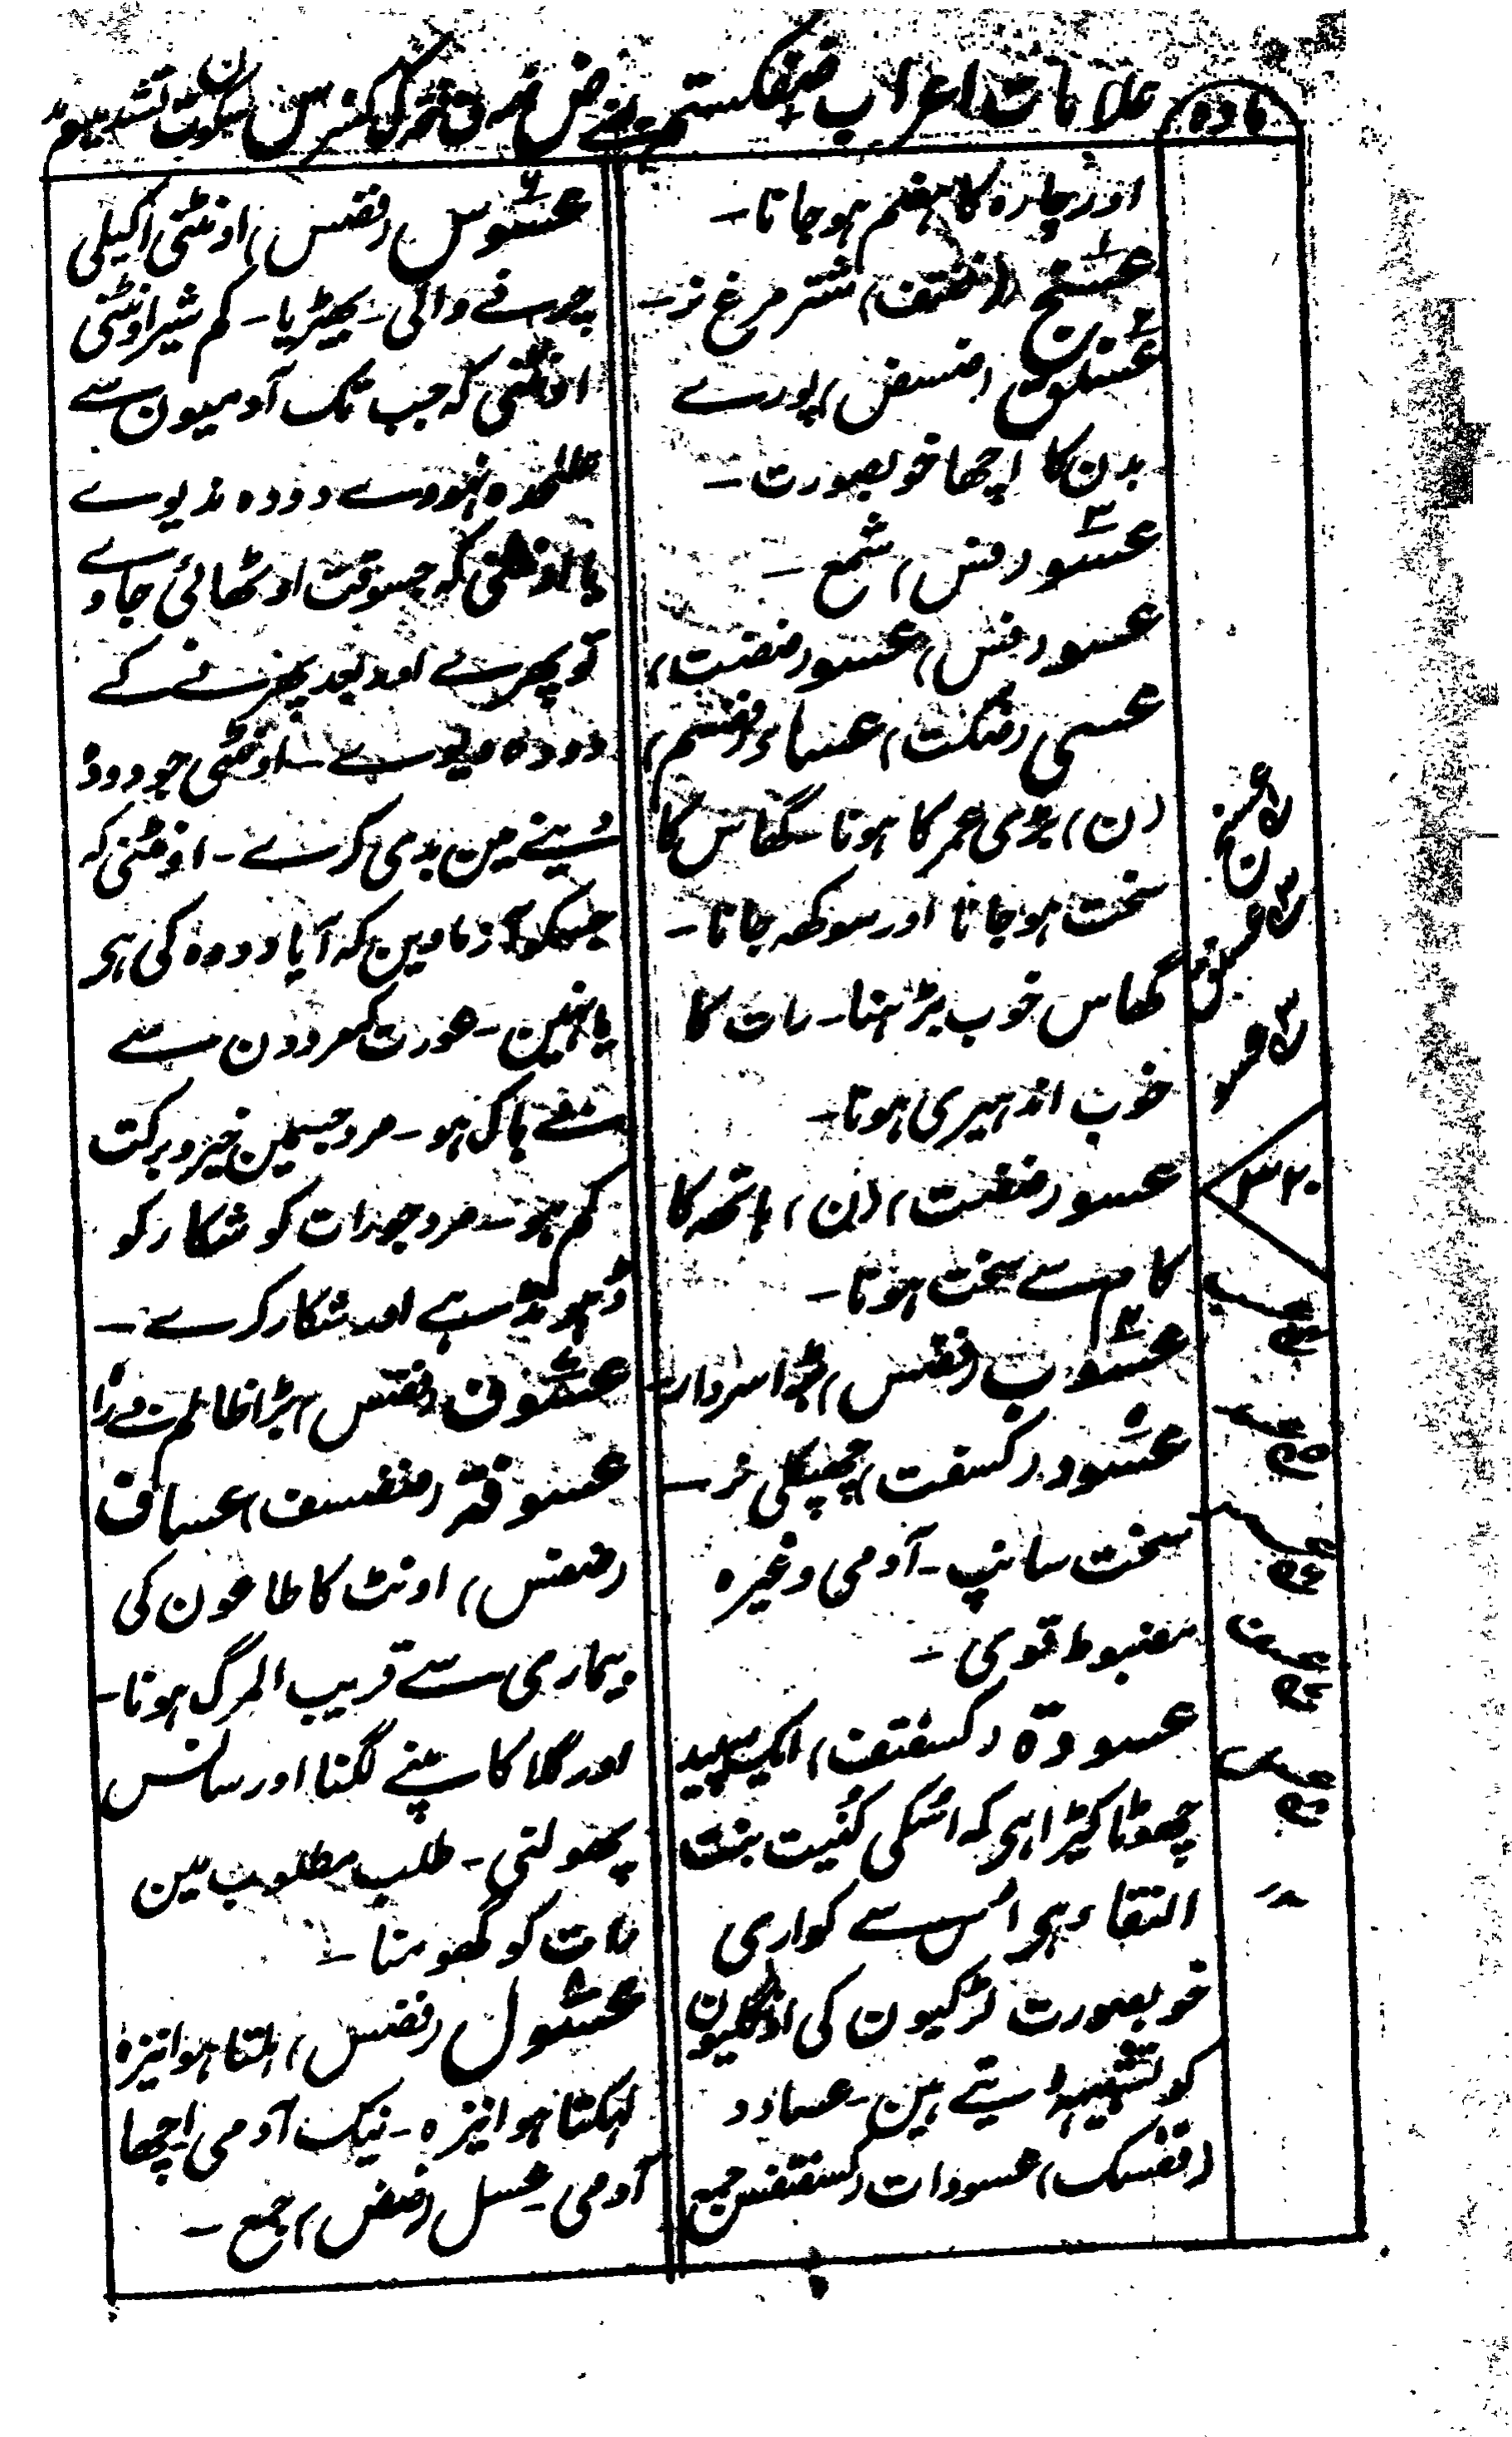 مادہ
علامات اعراب
اور چارہ کا ہضم ہوجانا۔
عسنج (فتف) شتر مرغ نر۔
عسنلق (فتسفض) پورے
بدن کا اچھا خوبصورت۔
عسو (فس) شمع۔
عسو (فس) عسو (ضضت)
عسی (ضکت) عساء (فقسم)
(ن) بڑی عمر کا ہونا گھاس کا
سخت ہوجانا اور سوکھہ جانا۔
گھاس خوب بڑہنا۔ رات کا
خوب اندہیری ہونا۔
عسو (ضضت) (ن) ہاتھہ کا
کام سے سخت ہونا۔
عسوب (فضس) بڑا سردار۔
عسود (کسفت) چھپکلی نر۔
سخت سانپ۔ آدمی وغیرہ
مضبوط قوی۔
عسودة (کسفتف) ایک سپید
چھوٹا کیڑا ہی کہ اسکی کنیت بنت
النقاء ہی اس سے کواری
خوبصورت لڑکیون کی انگلیون
کو تشبیہہ دیتے ہین۔ عساود
(ففسک) عسودات (کسفتفس) جمع
عسوس (فضس) اونٹنی اکیلی
چرنے والی۔ بھیڑیا۔ کم شیر اونٹنی
اونٹنی کہ جب تک آدمیون سے
علحدہ نہووے دودہ ندیوے
یا اونٹنی کہ جسوقت اوٹھائی جاوے
تو پھرے اور بعد پھرنے کے
دودہ دیوے۔ اونٹنی جو دودہ
دینے مین بدی کرے۔ اونٹنی کہ
جسکو آزماوین کہ آیا دودہ کی ہی
یا نہین۔ عورت کہ مردون سے
ملنے بیباک ہو۔ مرد جسمین خیر و برکت
کم ہو۔ مرد جو رات کو شکار کو
ڈہونڈہے اور شکار کرے۔
عسوف (فضس) بڑا ظالم
عسوفة (ضضسف) عساف
(ضفس) اونٹ کا طاعون کی
بیماری سے قریب المرگ ہونا۔
اور گلا کانپنے لگنا اور سانس
پھولنی۔ طلب مطلوب مین
رات کو گھومنا۔
عسول (فضس) ہلتا ہوا نیزہ
لہکتا ہوا نیزہ۔ نیک آدمی اچھا
آدمی۔ عسل (ضض) جمع۔
عسنج
عسنلق
عسو
۳۲۰
عسب
عسد
عسس
عسف
عسل